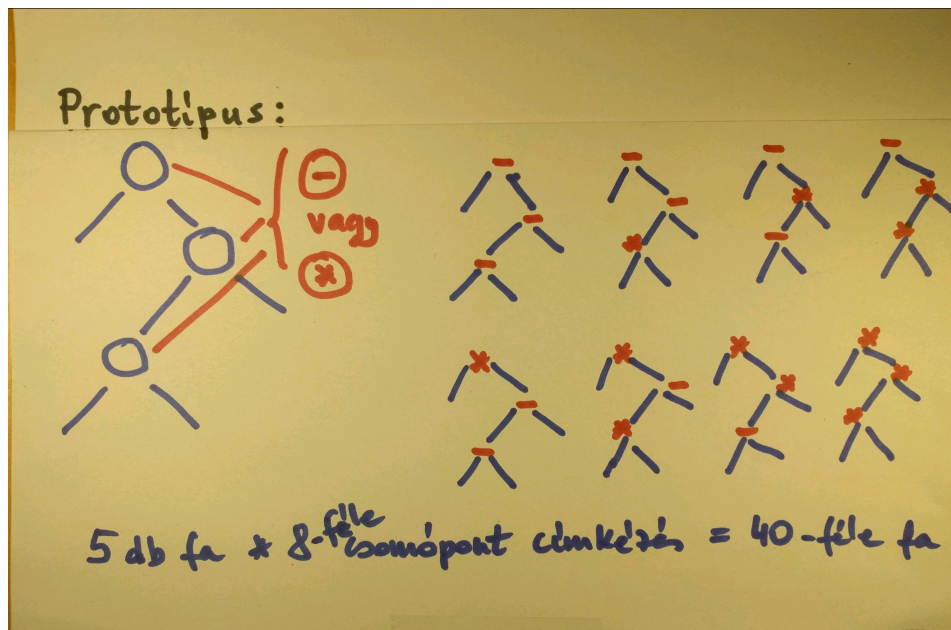 Prototípus:
-
vagy
*
5 db fa * 8-féle csomópont címkézés = 40-féle fa